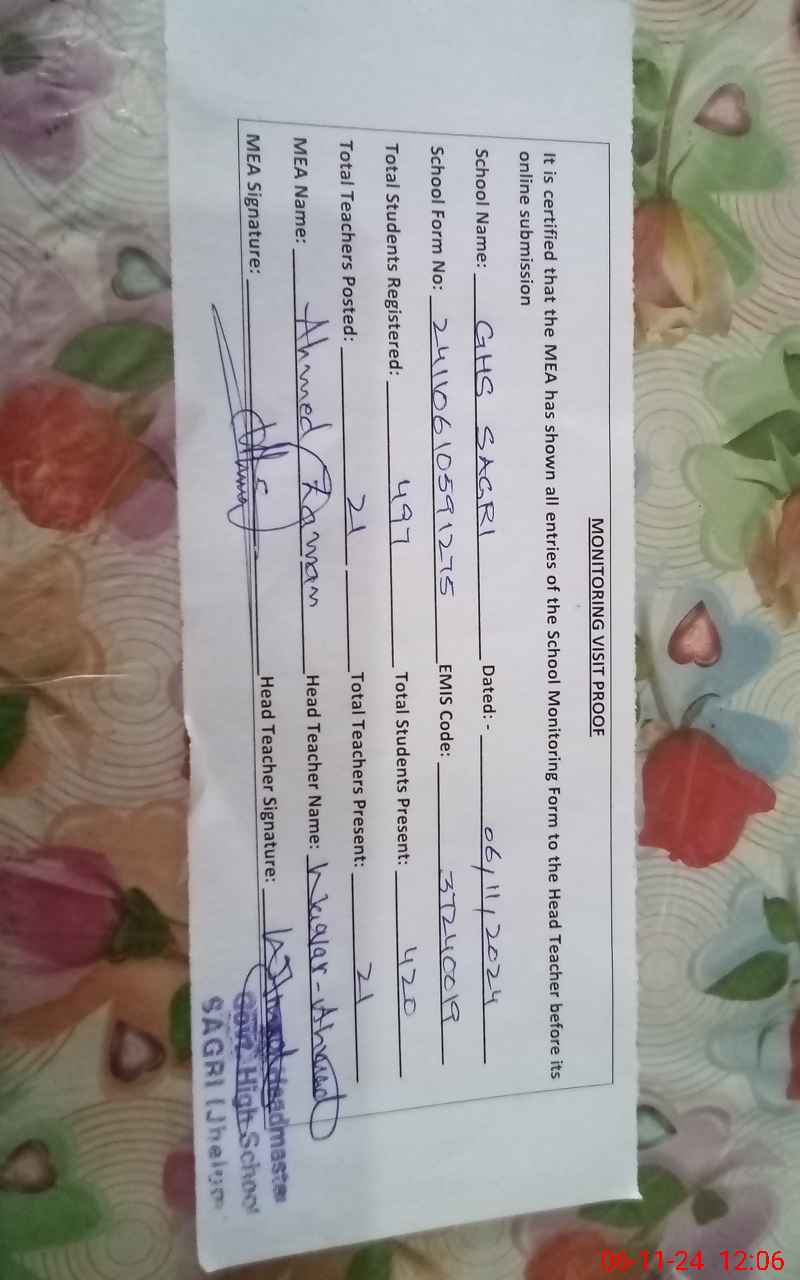 MONITORING VISIT PROOF
It is certified that the MEA has shown all entries of the School Monitoring Form to the Head Teacher before its
online submission
School Name: GHS SAGRI Dated: - 06/11/2024
School Form No: 24110610591275 EMIS Code: 37240019
Total Students Registered: 497 Total Students Present: 420
Total Teachers Posted: 21 Total Teachers Present: 21
MEA Name: Ahmed Zaman Head Teacher Name: Ahmad
MEA Signature: Head Teacher Signature:
Headmaster
Govt. High School
SAGRI (Jhelum
06-11-24 12:06